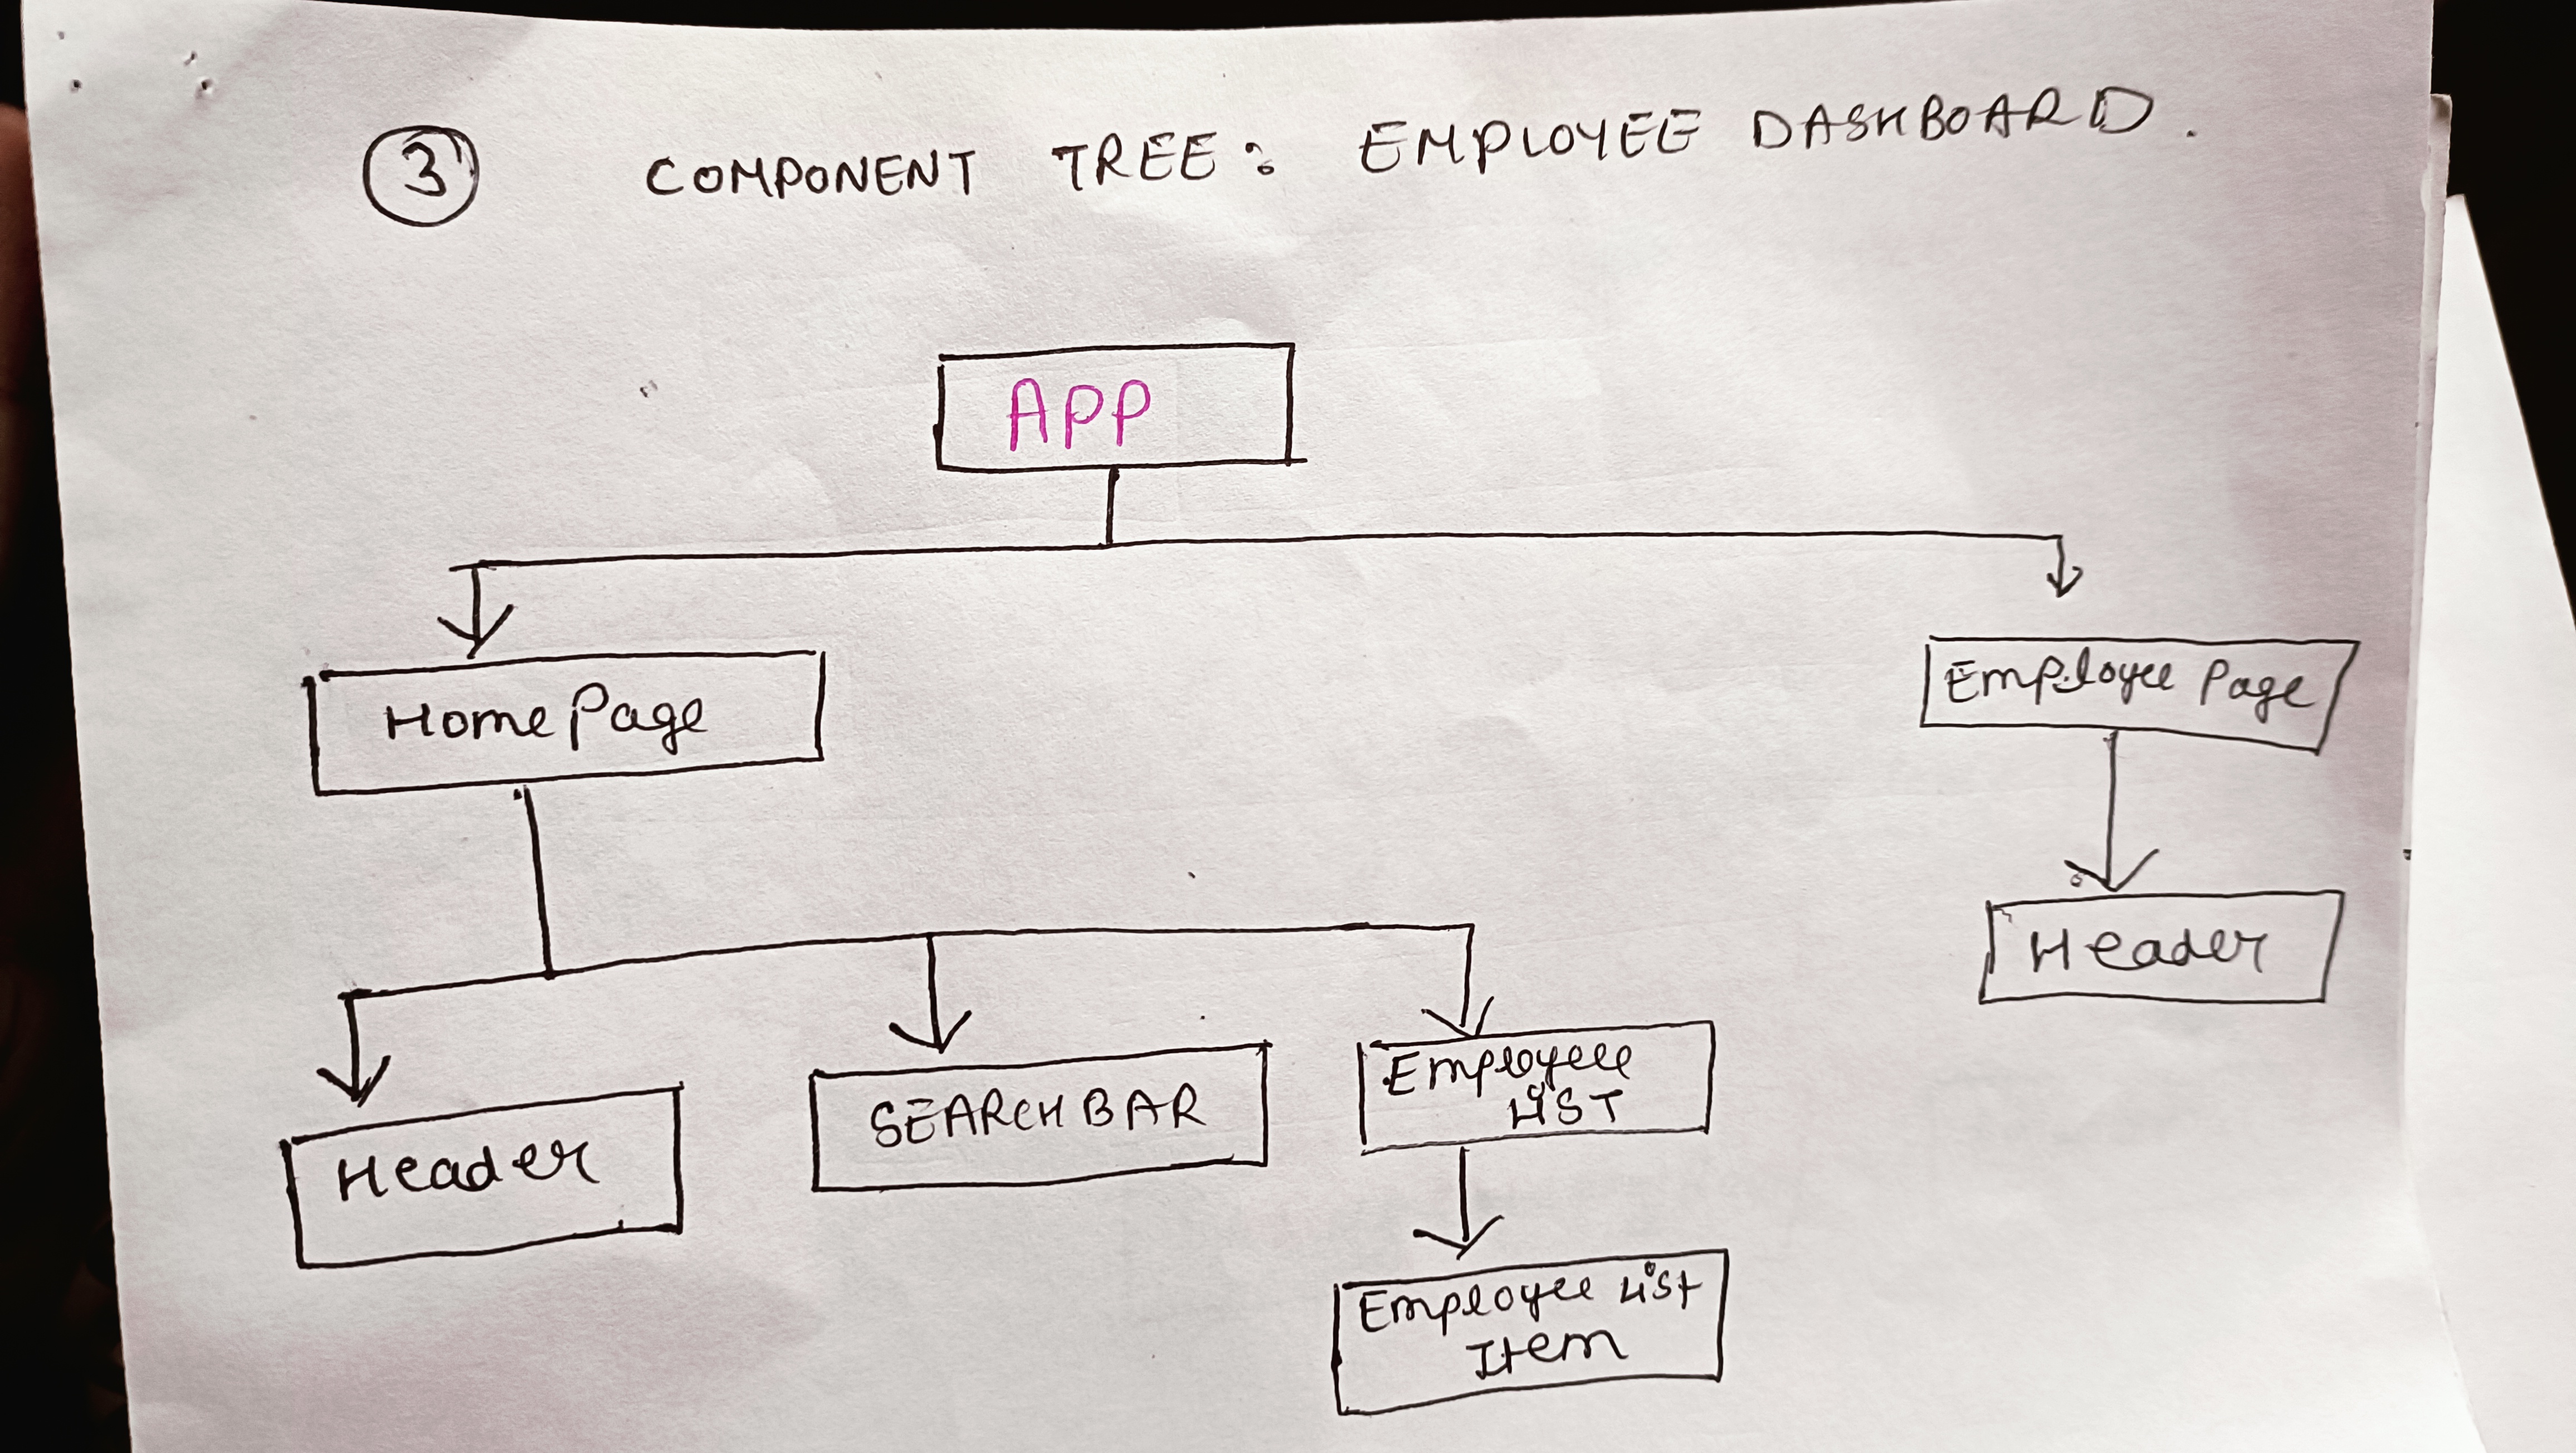 3 COMPONENT TREE: EMPLOYEE DASHBOARD.
APP
Home Page
Employee Page
Header
SEARCHBAR
Employeee
LIST
Header
Employee List
Item